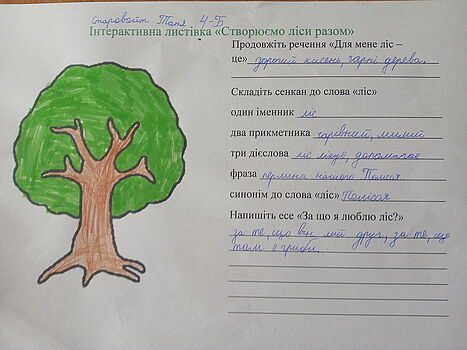 Старовойт Таня 4-Б
Інтерактивна листівка «Створюємо ліси разом»
Продовжіть речення «Для мене ліс –
це» дорогий кисень, гарні дерева.
Складіть сенкан до слова «ліс»
один іменник ліс
два прикметника чарівний, милий
три дієслова ліс лікує, допомагає
фраза перлина нашого Полісся
синонім до слова «ліс» Полісся
Напишіть есе «За що я люблю ліс?»
за те, що він мій друг, за те, що
там є гриби.